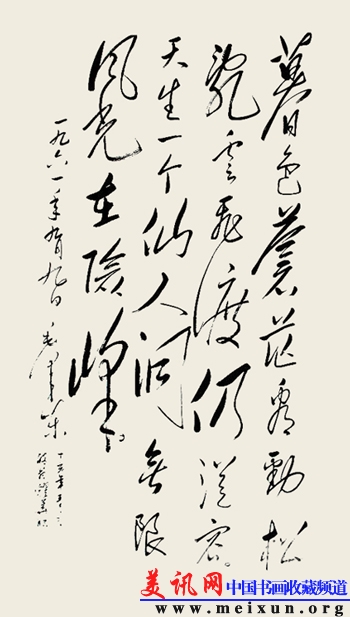 暮色蒼茫看勁松
亂雲飛渡仍從容
天生一个仙人洞無限
風光在險峰
一九六一年九月九日
美讯网 中国书画收藏频道
www.meixun.org